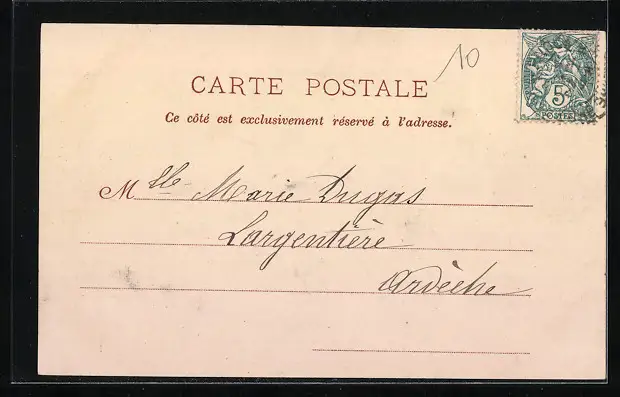 10
CARTE POSTALE
Ce côté est exclusivement réservé à l'adresse.
Mlle Marie Dugas
Largentière
Ardèche
5c
POSTES